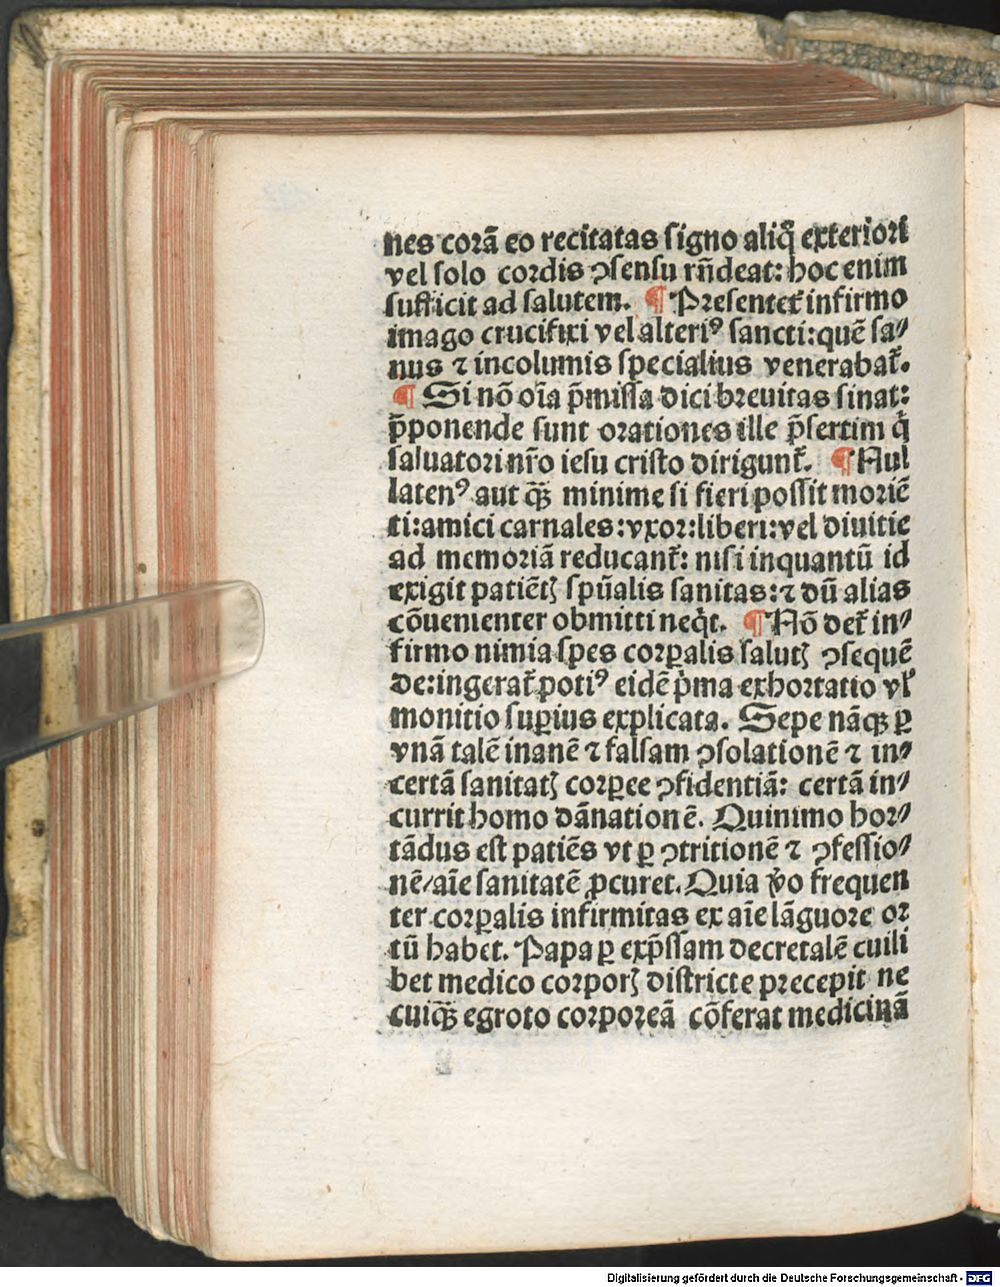 nes corā eo recitatas ſigno aliq̊ exteriori
vel ſolo cordis ꝯſenſu rñdeat: hoc enim
ſufficit ad ſalutem. ¶ Preſentet᷑ infirmo
imago crucifixi vel alteriꝰ ſancti: quē ſa⸗
nus ⁊ incolumis ſpecialius venerabat᷑.
¶ Si nō oīa p̄miſſa dici breuitas ſinat:
p̄ponende ſunt orationes ille p̄ſertim q̇
ſaluatori nr̄o ieſu criſto dirigunt᷑. ¶ Nul
latenꝰ aut qꝫ minime ſi fieri poſſit moriē
ti: amici carnales: vxor: liberi: vel diuitie
ad memoriā reducant᷑: niſi inquantū id
exigit patiētꝭ ſpūalis ſanitas: ⁊ dū alias
cōuenienter obmitti neq̇t. ¶ Nō det᷑ in⸗
firmo nimia ſpes corꝑalis ſalutꝭ ꝯſequē
de: ingerat᷑ potiꝰ eidē p̄ma exhortatio vl̓
monitio ſuꝑius explicata. Sepe nāqꝫ ꝑ
vnā talē inanē ⁊ falſam ꝯſolationē ⁊ in⸗
certā ſanitatꝭ corꝑee ꝯfidentiā: certā in⸗
currit homo dānationē. Quinimo hor⸗
tādus eſt patiēs vt ꝑ ꝯtritionē ⁊ ꝯfeſſio⸗
nē/ aīe ſanitatē ꝓcuret. Quia v̊o frequen
ter corꝑalis infirmitas ex aīe lāguore or
tū habet. Papa ꝑ exp̄ſſam decretalē cuili
bet medico corporꝭ diſtricte precepit ne
cuiqꝫ egroto corporeā cōferat medicinā
Digitalisierung gefördert durch die Deutsche Forschungsgemeinschaft - DFG